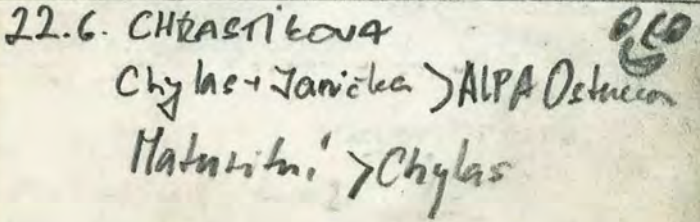 22.6. CHRASTÍKOVA
Chylas + Janička > ALPA Ostrava
Maturitní > Chylas